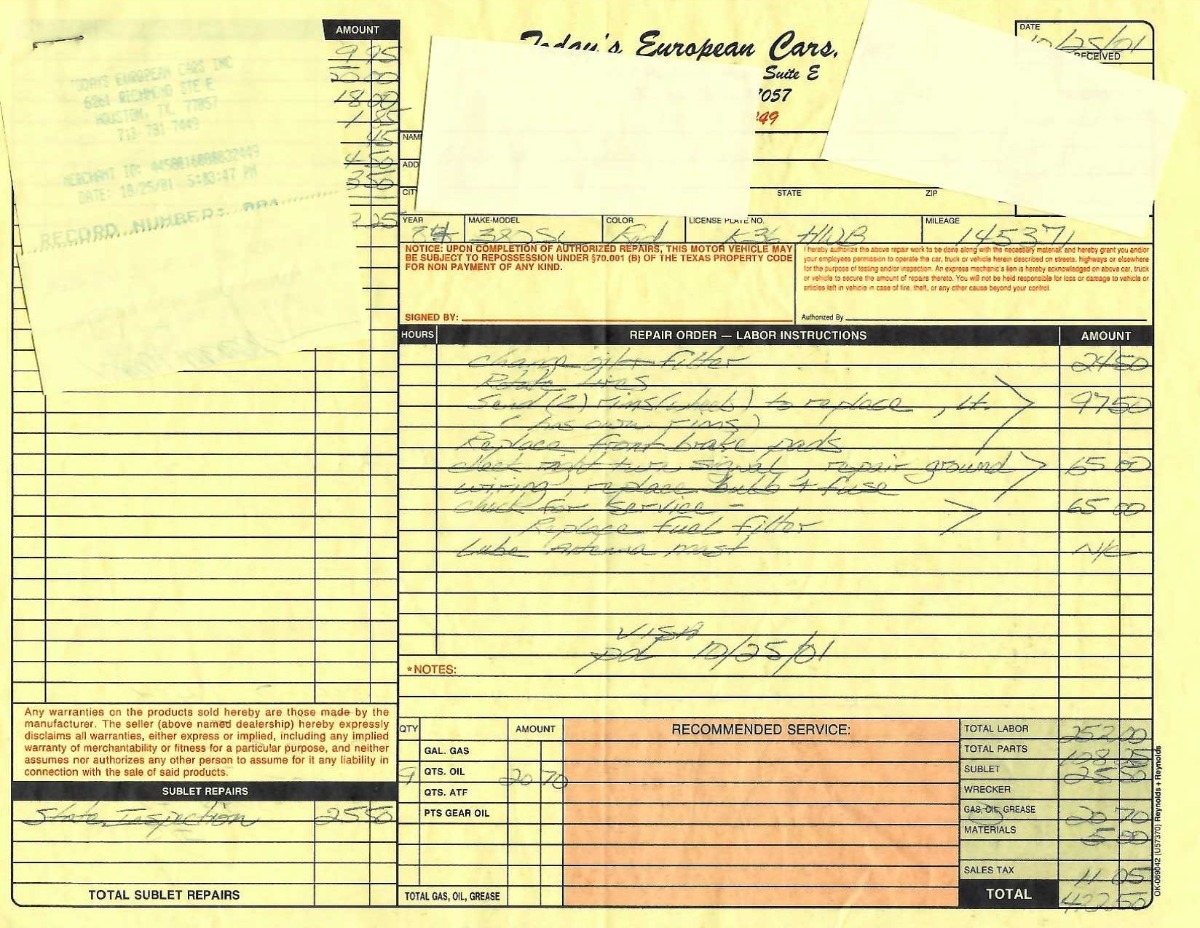 AMOUNT
9 95
20 00
18 00
1 85
45
4 50
3 50
2 25
TODAYS EUROPEAN CARS INC
6061 RICHMOND STE E
HOUSTON, TX 77057
713-781-7449
DATE: 10/25/01 5:03:47 PM
RECORD NUMBER:
Today's European Cars,
Suite E
7057
49
DATE
10/25/01
RECEIVED
NAM
ADD
CIT
STATE
ZIP
YEAR MAKE-MODEL COLOR LICENSE PLATE NO. MILEAGE
380SL Red K36 HWB 145371
NOTICE: UPON COMPLETION OF AUTHORIZED REPAIRS, THIS MOTOR VEHICLE MAY
BE SUBJECT TO REPOSSESSION UNDER §70.001 (B) OF THE TEXAS PROPERTY CODE
FOR NON PAYMENT OF ANY KIND.
SIGNED BY:
I hereby authorize the above repair work to be done along with the necessary material, and hereby grant you and/or
your employees permission to operate the car, truck or vehicle herein described on streets, highways or elsewhere
for the purpose of testing and/or inspection. An express mechanic's lien is hereby acknowledged on above car, truck
or vehicle to secure the amount of repairs thereto. You will not be held responsible for loss or damage to vehicle or
articles left in vehicle in case of fire, theft, or any other cause beyond your control.
Authorized By
HOURS REPAIR ORDER — LABOR INSTRUCTIONS AMOUNT
Change oil + filter 24 50
Rotate tires
Send (2) rims (wheels) to replace, 97 50
(has own rims)
Replace front brake pads
check right turn signal, repair ground 65 00
wiring, replace bulb + fuse
check for Service - 65 00
Replace fuel filter
Lube Antenna mast N/C
VISA
pd 10/25/01
*NOTES:
Any warranties on the products sold hereby are those made by the
manufacturer. The seller (above named dealership) hereby expressly
disclaims all warranties, either express or implied, including any implied
warranty of merchantability or fitness for a particular purpose, and neither
assumes nor authorizes any other person to assume for it any liability in
connection with the sale of said products.
SUBLET REPAIRS
State Inspection 25 50
TOTAL SUBLET REPAIRS
QTY AMOUNT
GAL. GAS
9 QTS. OIL 20 70
QTS. ATF
PTS GEAR OIL
TOTAL GAS, OIL, GREASE
RECOMMENDED SERVICE:
TOTAL LABOR 252 00
TOTAL PARTS 108 25
SUBLET 25 50
WRECKER
GAS, OIL, GREASE 20 70
MATERIALS 5 00
SALES TAX 11 05
TOTAL 422 50
OK-069042 (U57370) Reynolds + Reynolds